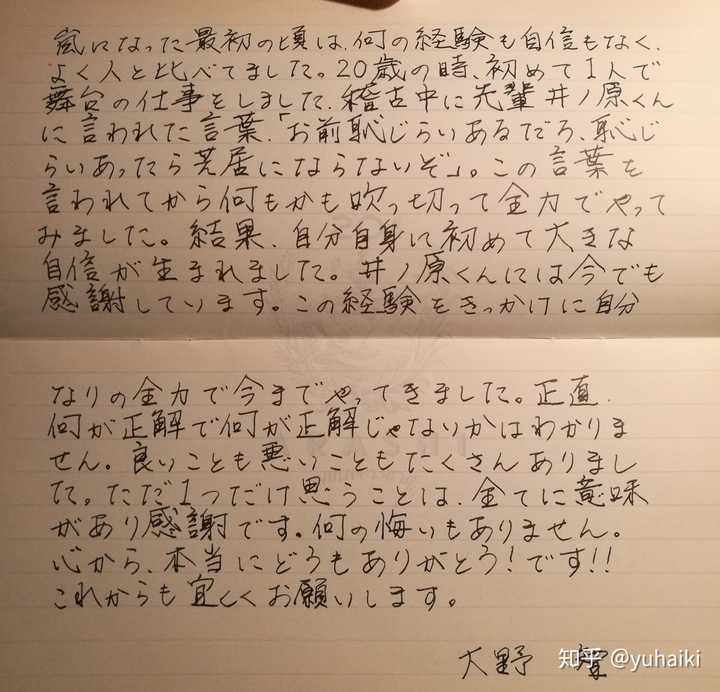 嵐になった最初の頃は、何の経験も自信もなく、
よく人と比べてました。20歳の時、初めて1人で
舞台の仕事をしました、稽古中に先輩井ノ原くん
に言われた言葉、「お前恥じらいあるだろ、恥じ
らいあったら芝居にならないぞ」。この言葉を
言われてから何もかも吹っ切って全力でやって
みました。結果、自分自身に初めて大きな
自信が生まれました。井ノ原くんには今でも
感謝しています。この経験をきっかけに自分
なりの全力で今までやってきました。正直、
何が正解で何が正解じゃないかはわかりま
せん。良いことも悪いこともたくさんありまし
た。ただ1つだけ思うことは、全てに意味
があり感謝です。何の悔いもありません。
心から、本当にどうもありがとう!です!!
これからも宜しくお願いします。
大野 智
知乎 @yuhaiki